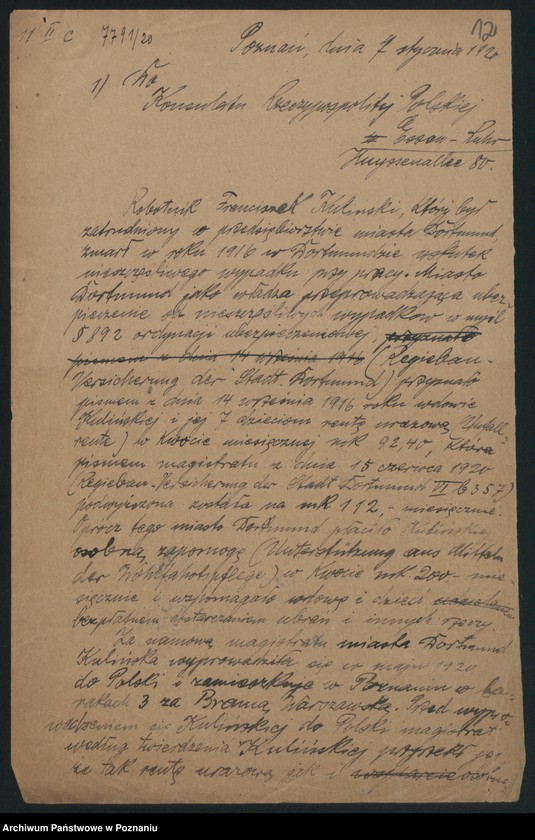 11 II C 7791/20
12
Poznań, dnia 7 stycznia 1920
1) Do
Konsulatu Rzeczypospolitej Polskiej
w Essen-Ruhr
Huyssenallee 80.
Robotnik Franciszek Kuliński, który był
zatrudniony w przedsiębiorstwie miasta Dortmund,
zmarł w roku 1916 w Dortmundzie wskutek
nieszczęśliwego wypadku przy pracy. Miasto
Dortmund jako władza przeprowadzająca ubez-
pieczenie od nieszczęśliwych wypadków w myśl
§ 892 ordynacji ubezpieczeniowej, przyznało
pismem z dnia 14 września 1916 (Regiebau-
Versicherung der Stadt Dortmund) przyznało
pismem z dnia 14 września 1916 roku wdowie
Kulińskiej i jej 7 dzieciom rentę urazową (Unfall-
rente) w kwocie miesięcznej mk 92,40, która
pismem magistratu z dnia 15 czerwca 1920
(Regiebau-Versicherung der Stadt Dortmund II b 357)
podwyższona została na mk 112,- miesięcznie.
Oprócz tego miasto Dortmund płaciło Kulińskiej
osobną zapomogę (Unterstützung aus Mitteln
der Wohlfahrtspflege) w kwocie mk. 200- mie-
sięcznie i wspomagało wdowę i dzieci
bezpłatnem dostarczaniem ubrań i innych rzeczy.
Za namową magistratu miasta Dortmund
Kulińska wyprowadziła się w maju 1920
do Polski i zamieszkuje w Poznaniu w ba-
rakach 3 za Bramą Warszawską. Przed wypro-
wadzeniem się Kulińskiej do Polski magistrat
według twierdzenia Kulińskiej przyrzekł jej
że tak rentę urazową jak i